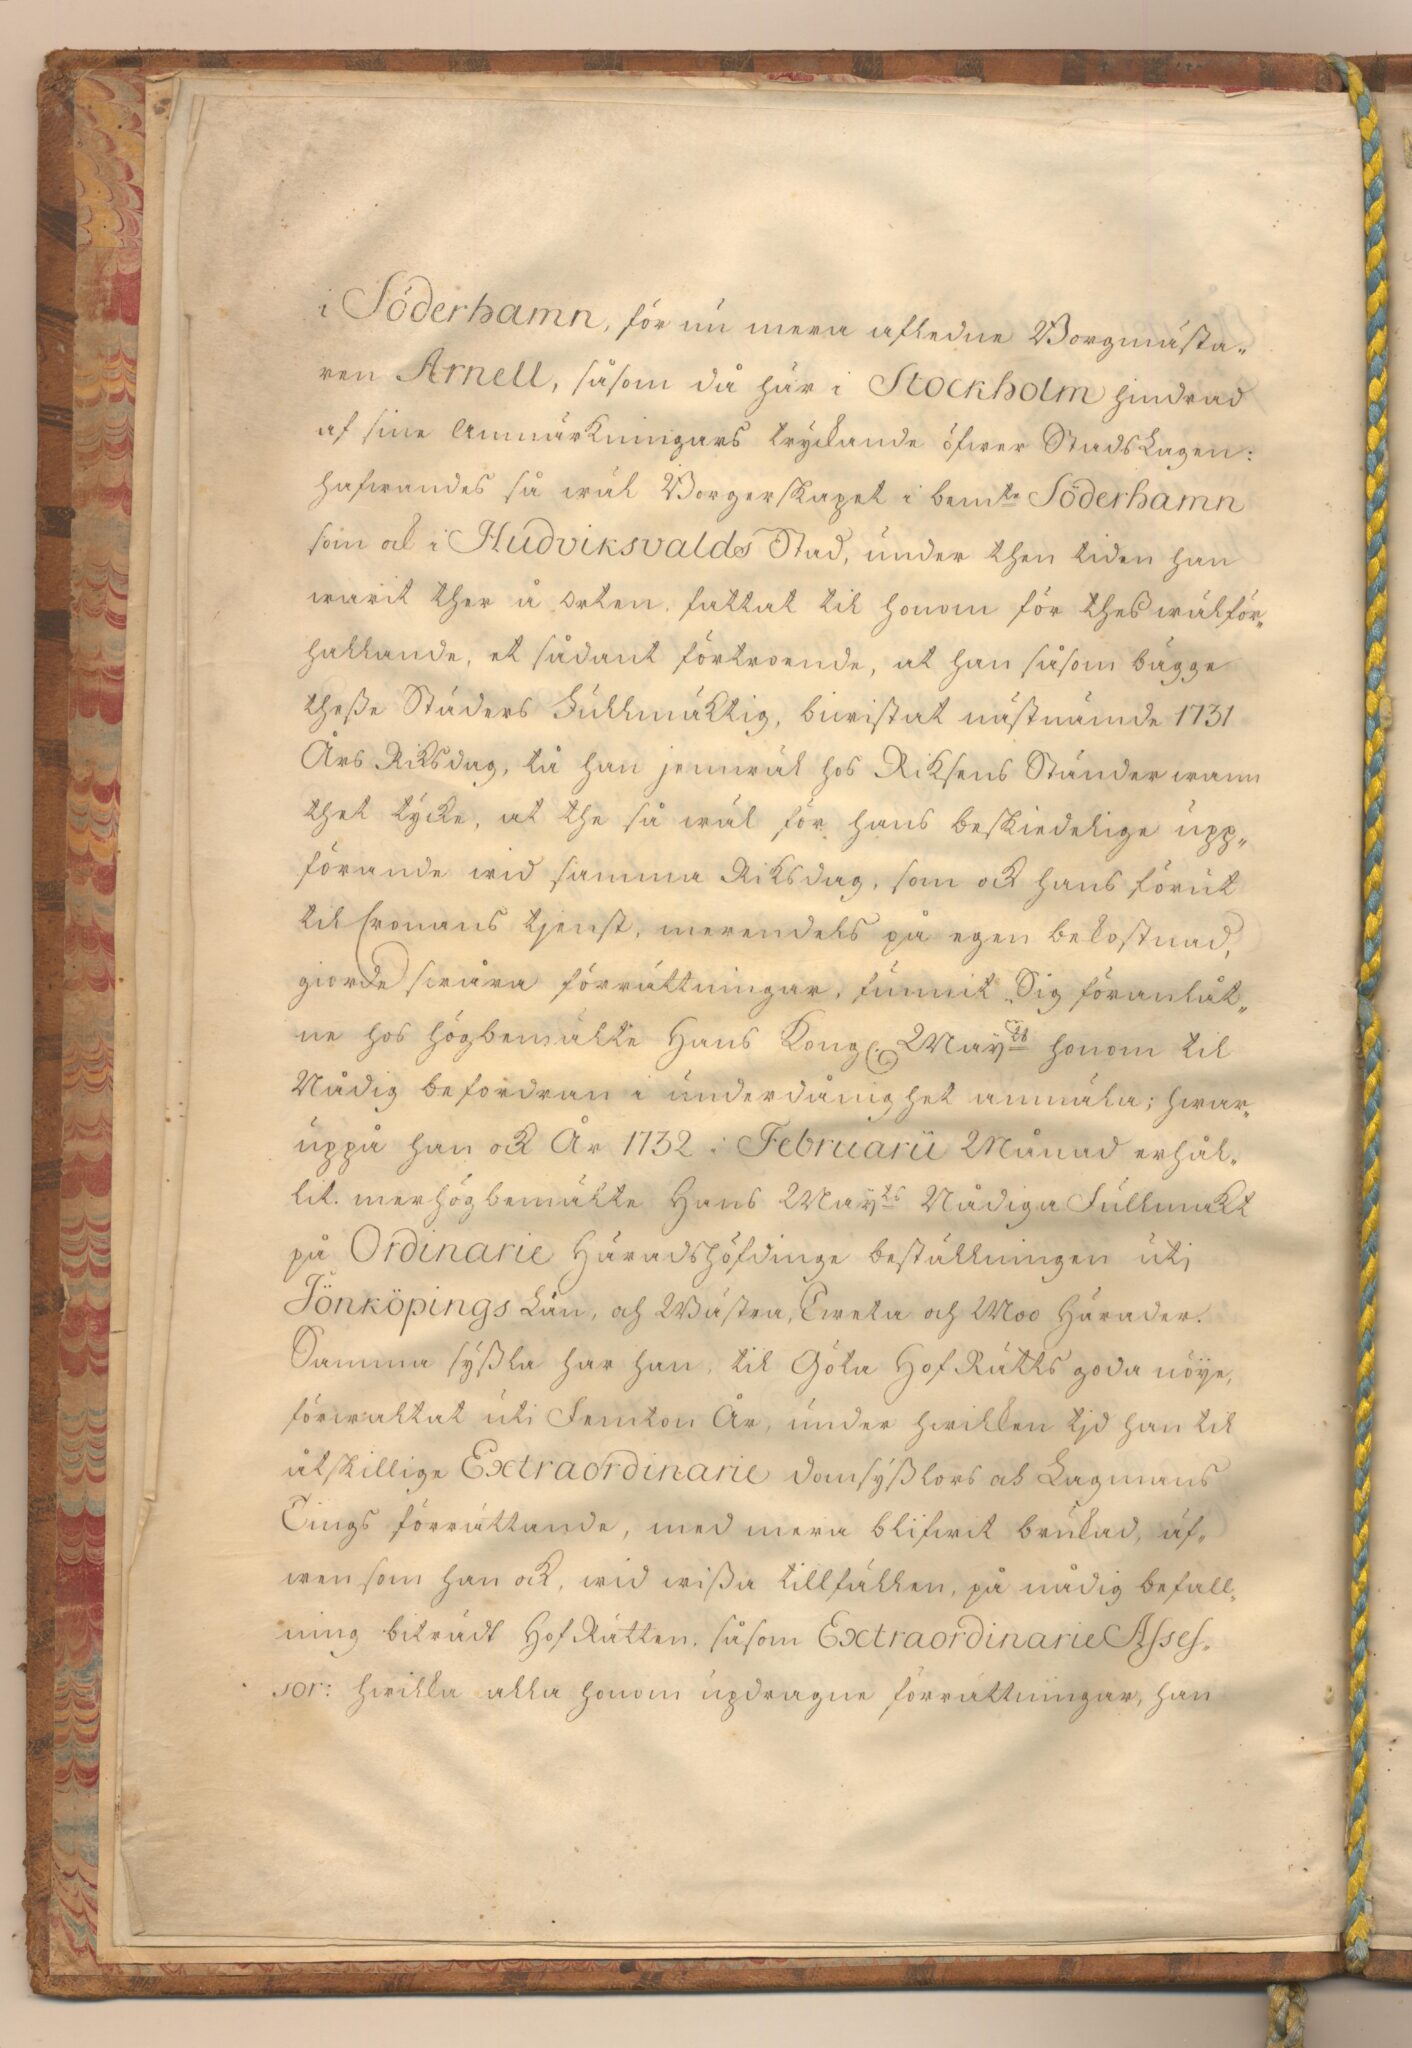 i Söderhamn, för nu mera afledne Borgmästa„
ren Arnell, såsom då här i Stockholm hindrad
af sine Anmärkningars tryckande öfwer StadsLagen:
hafwandes så wäl Borgerskapet i bemte Söderhamn
som ock i Hudviksvalds Stad, under then tiden han
warit ther å orten, fattat til honom för thes wälför„
hållande, et sådant förtroende, at han såsom bägge
theße Städers Fullmäktig, biwistat nästnämde 1731
Års Riksdag, tå han jemwäl hos Riksens Ständer wann
thet tycke, at the så wäl för hans beskiedelige upp„
förande wid samma Riksdag, som ock hans förut
til Cronans tjenst, merendels på egen bekostnad,
giorde swåra förrättningar, funnit Sig föranlåt„
ne hos högbemälte Hans Kongl. Mayts honom til
Nådig befordran i underdånighet anmäla; hwar„
uppå han ock År 1732 i Februarii Månad erhål„
lit merhögbemälte Hans Mayts Nådiga Fullmakt
på Ordinarie Häradshöfdinge beställningen uti
Jönköpings Län, och Wästra, Tweta och Moo Härader.
Samma syßla har han, til Göta HofRätts goda nöye,
förwaltat uti Femton År, under hwilken tjd han til
åtskillige Extraordinarie domsyßlors och Lagmans
Tings förrättande, med mera blifwit brukad, äf„
wen som han ock, wid wißa tillfällen, på nådig befall„
ning biträdt HofRätten, såsom Extraordinarie Asses„
sor: hwilka alla honom updragne förrättningar, han